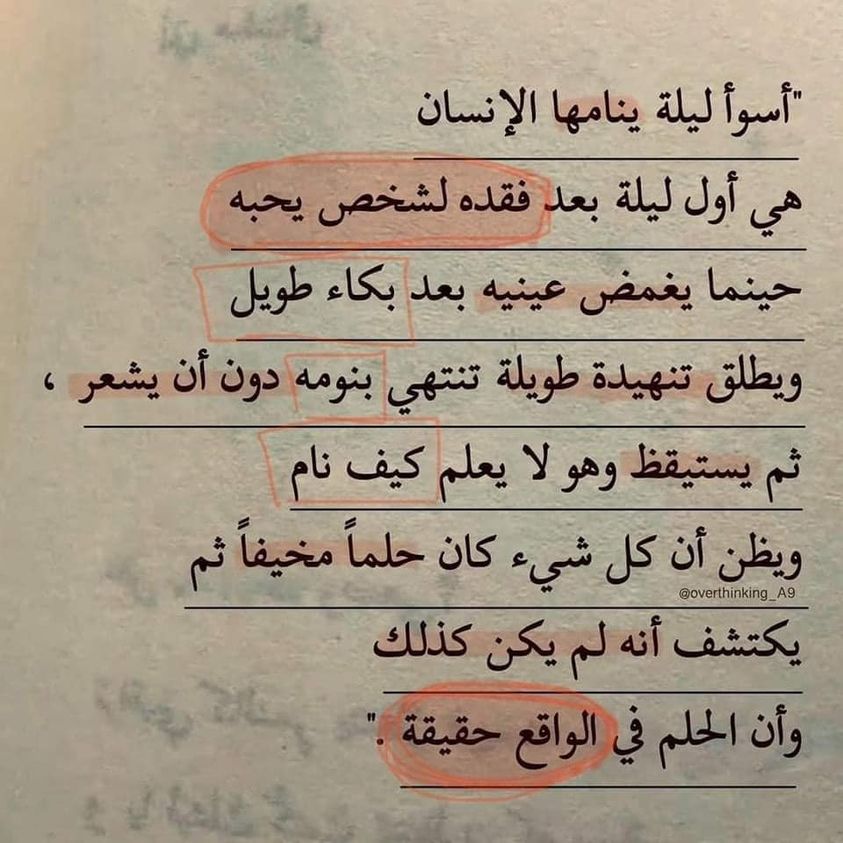 "أسوأ ليلة ينامها الإنسان
هي أول ليلة بعد فقده لشخص يحبه
حينما يغمض عينيه بعد بكاء طويل
ويطلق تنهيدة طويلة تنتهي بنومه دون أن يشعر ،
ثم يستيقظ وهو لا يعلم كيف نام
ويظن أن كل شيء كان حلماً مخيفاً ثم
@overthinking_A9
يكتشف أنه لم يكن كذلك
وأن الحلم في الواقع حقيقة ."